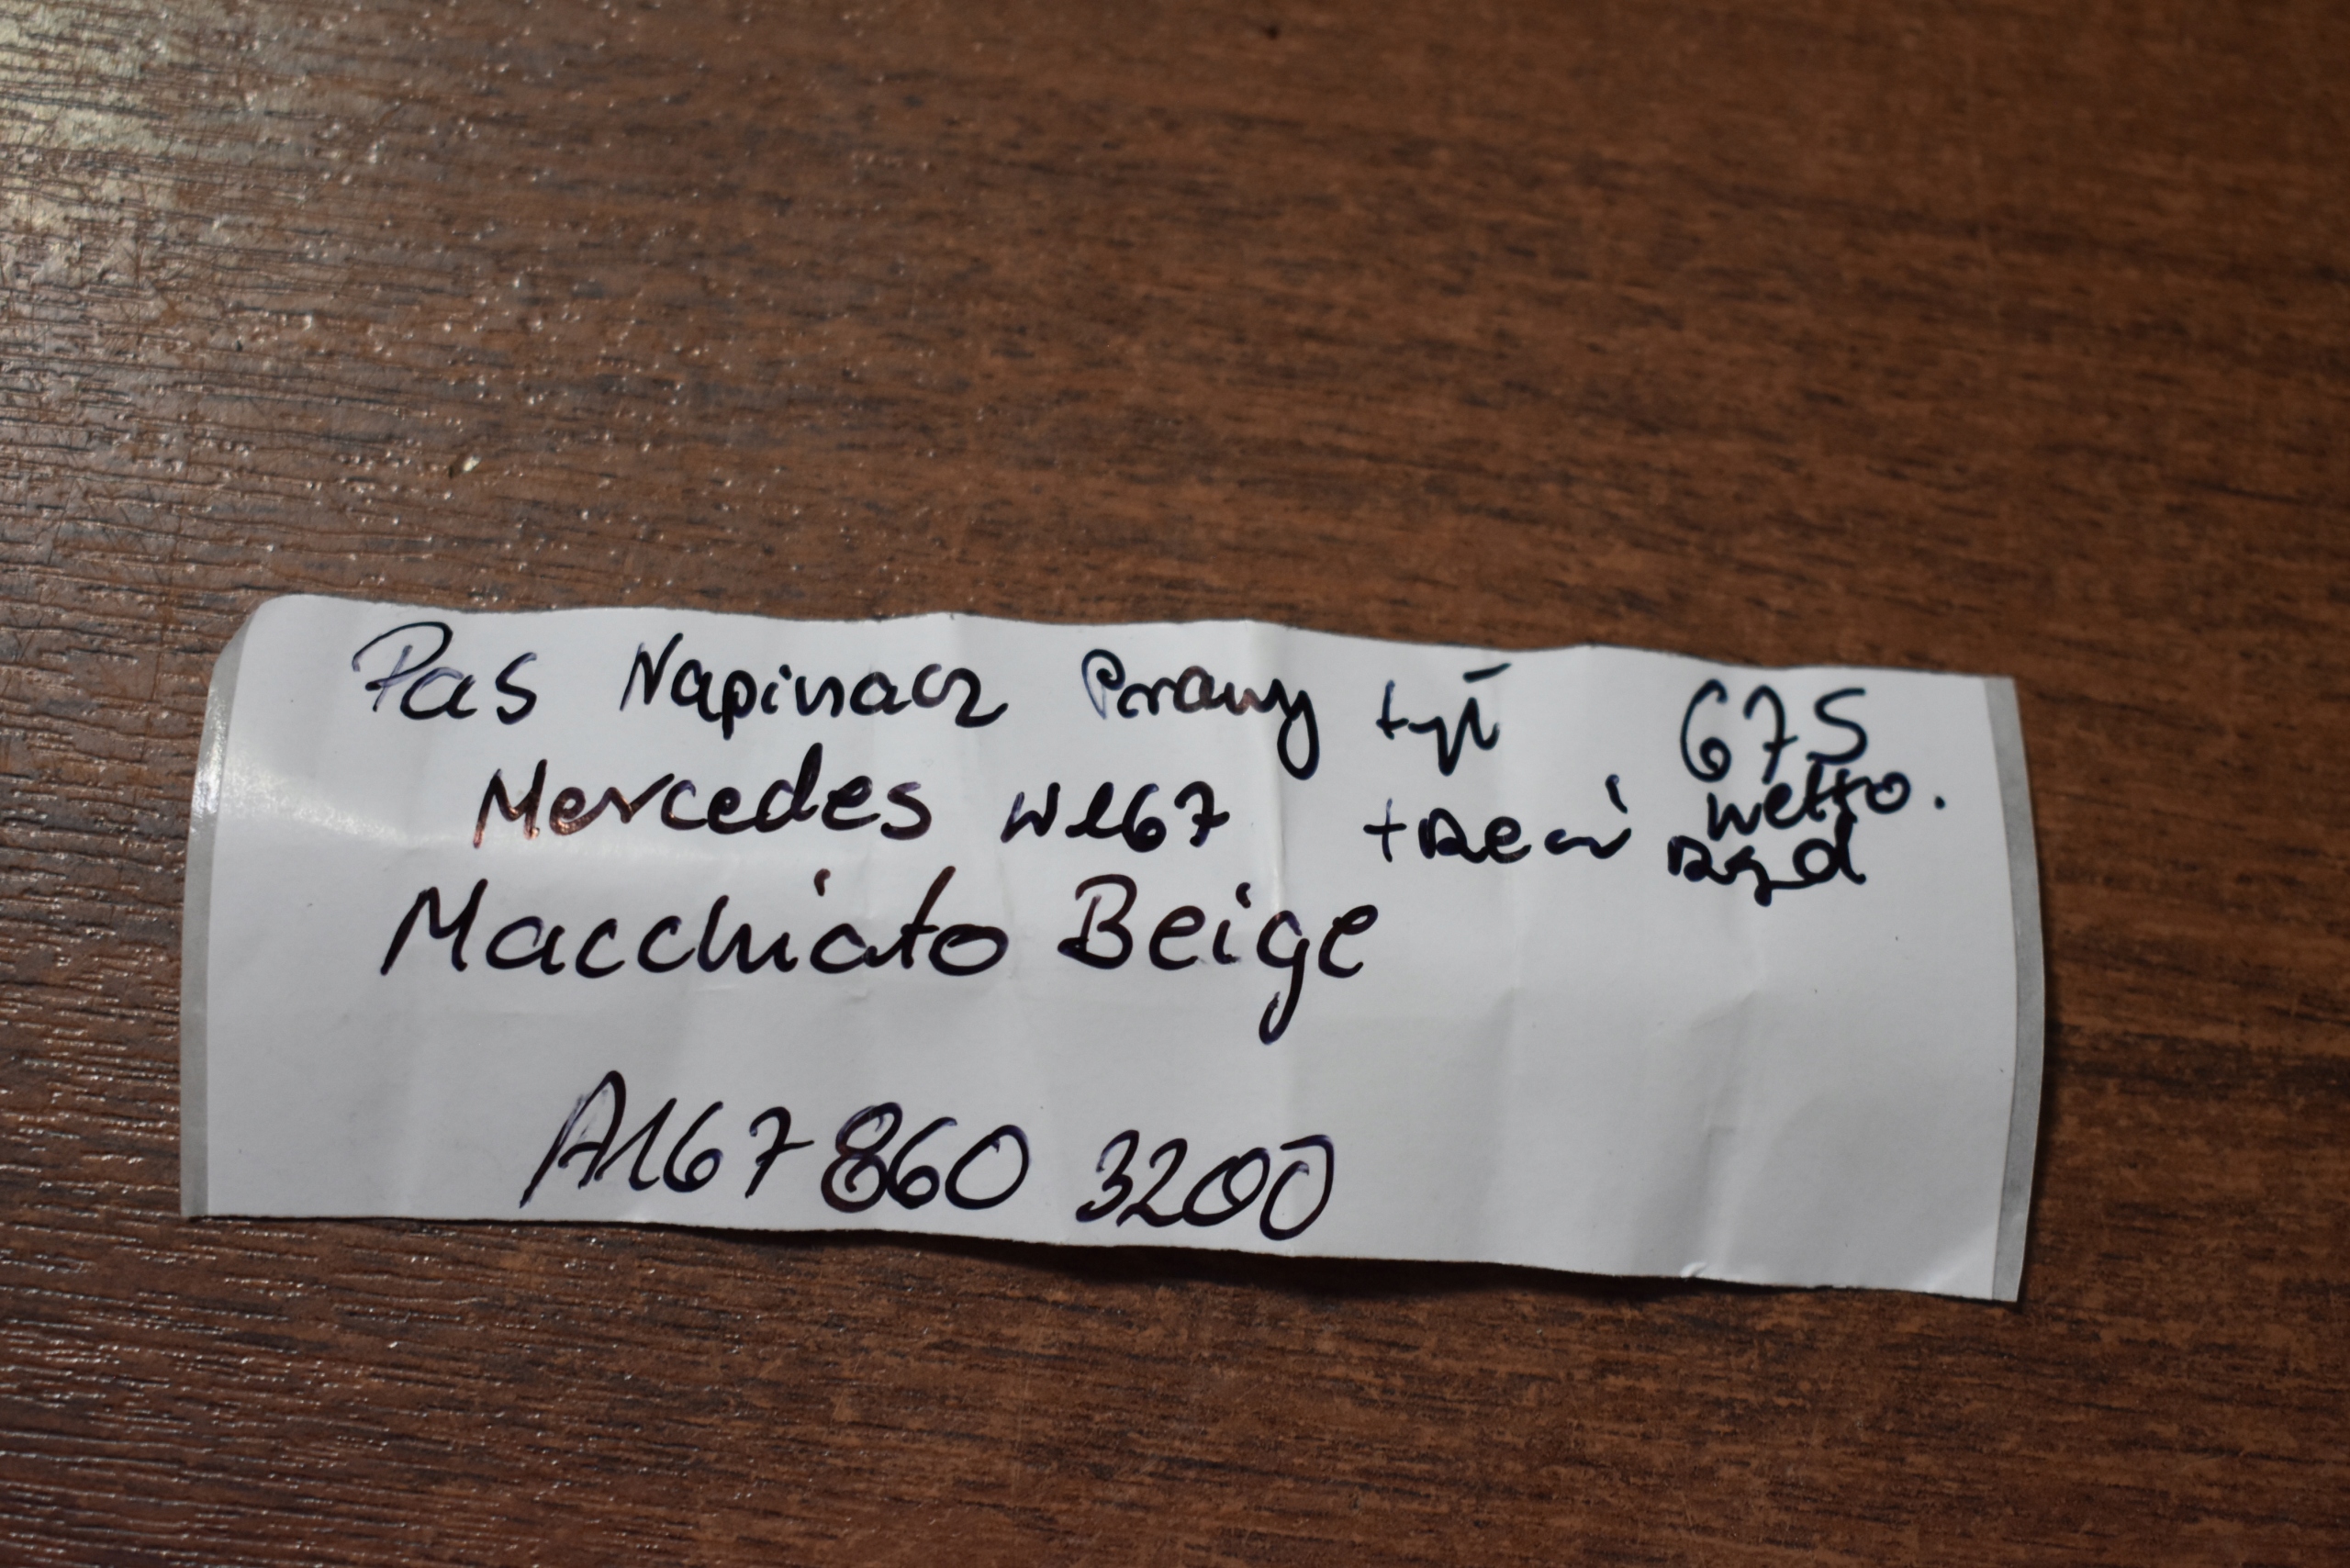 Pas Napinacz Prawy tył 675
netto.
Mercedes W167 trzeci rząd
Macchiato Beige
A167 860 3200